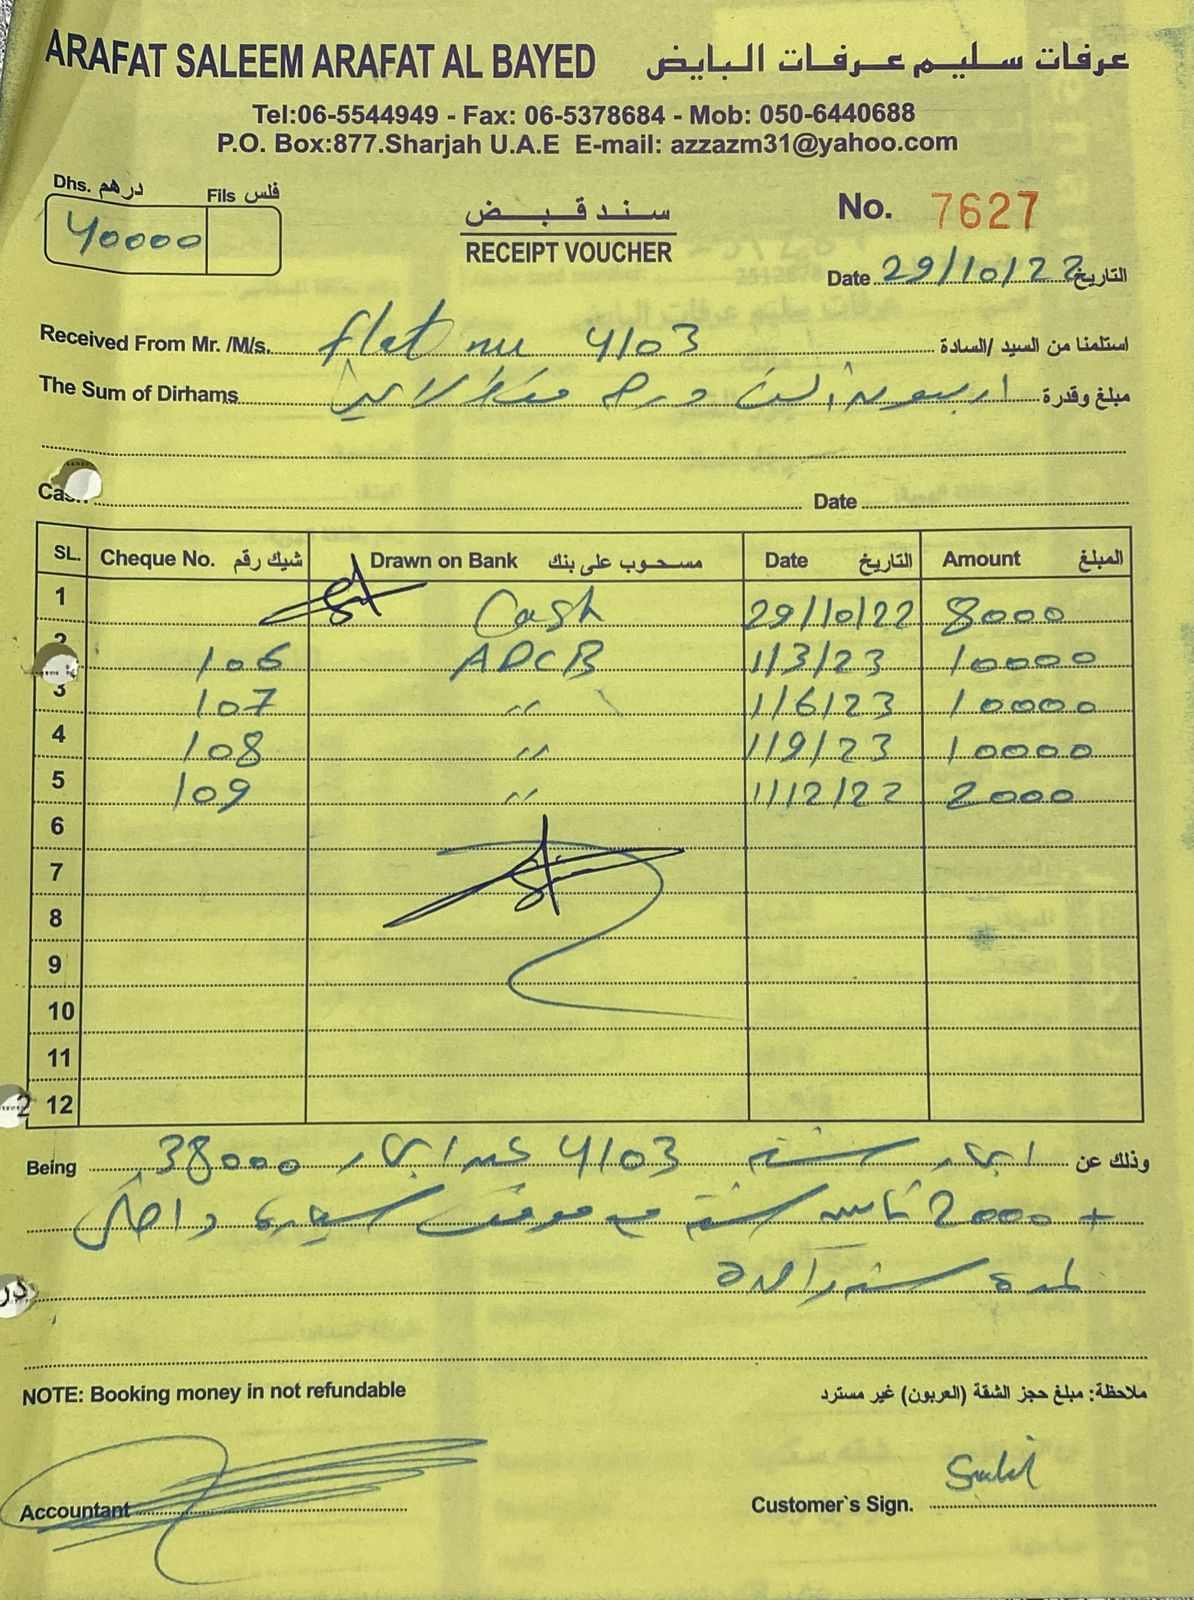 ARAFAT SALEEM ARAFAT AL BAYED عرفات سليم عرفات البايض
Tel:06-5544949 - Fax: 06-5378684 - Mob: 050-6440688
P.O. Box:877.Sharjah U.A.E E-mail: azzazm31@yahoo.com
Dhs. درهم Fils فلس
40000
سند قبض
RECEIPT VOUCHER
No. 7627
Date 29/10/22 التاريخ
Received From Mr. /M/s. flat nu 4103 استلمنا من السيد /السادة
The Sum of Dirhams اربعون الف درهم فقط لاغير مبلغ وقدرة
Cash Date
SL. Cheque No. شيك رقم Drawn on Bank مسحوب على بنك Date التاريخ Amount المبلغ
1 Cash 29/10/22 8000
2 106 ADCB 1/3/23 10000
3 107 " 1/6/23 10000
4 108 " 1/9/23 10000
5 109 " 1/12/22 2000
6
7
8
9
10
11
12
Being ايجار شقة 4103 عقد ايجار 38000 وذلك عن
+ 2000 تامين شقة مع موقف سيارة داخلي
لمدة سنة واحدة
NOTE: Booking money in not refundable ملاحظة: مبلغ حجز الشقة (العربون) غير مسترد
Accountant Customer`s Sign.